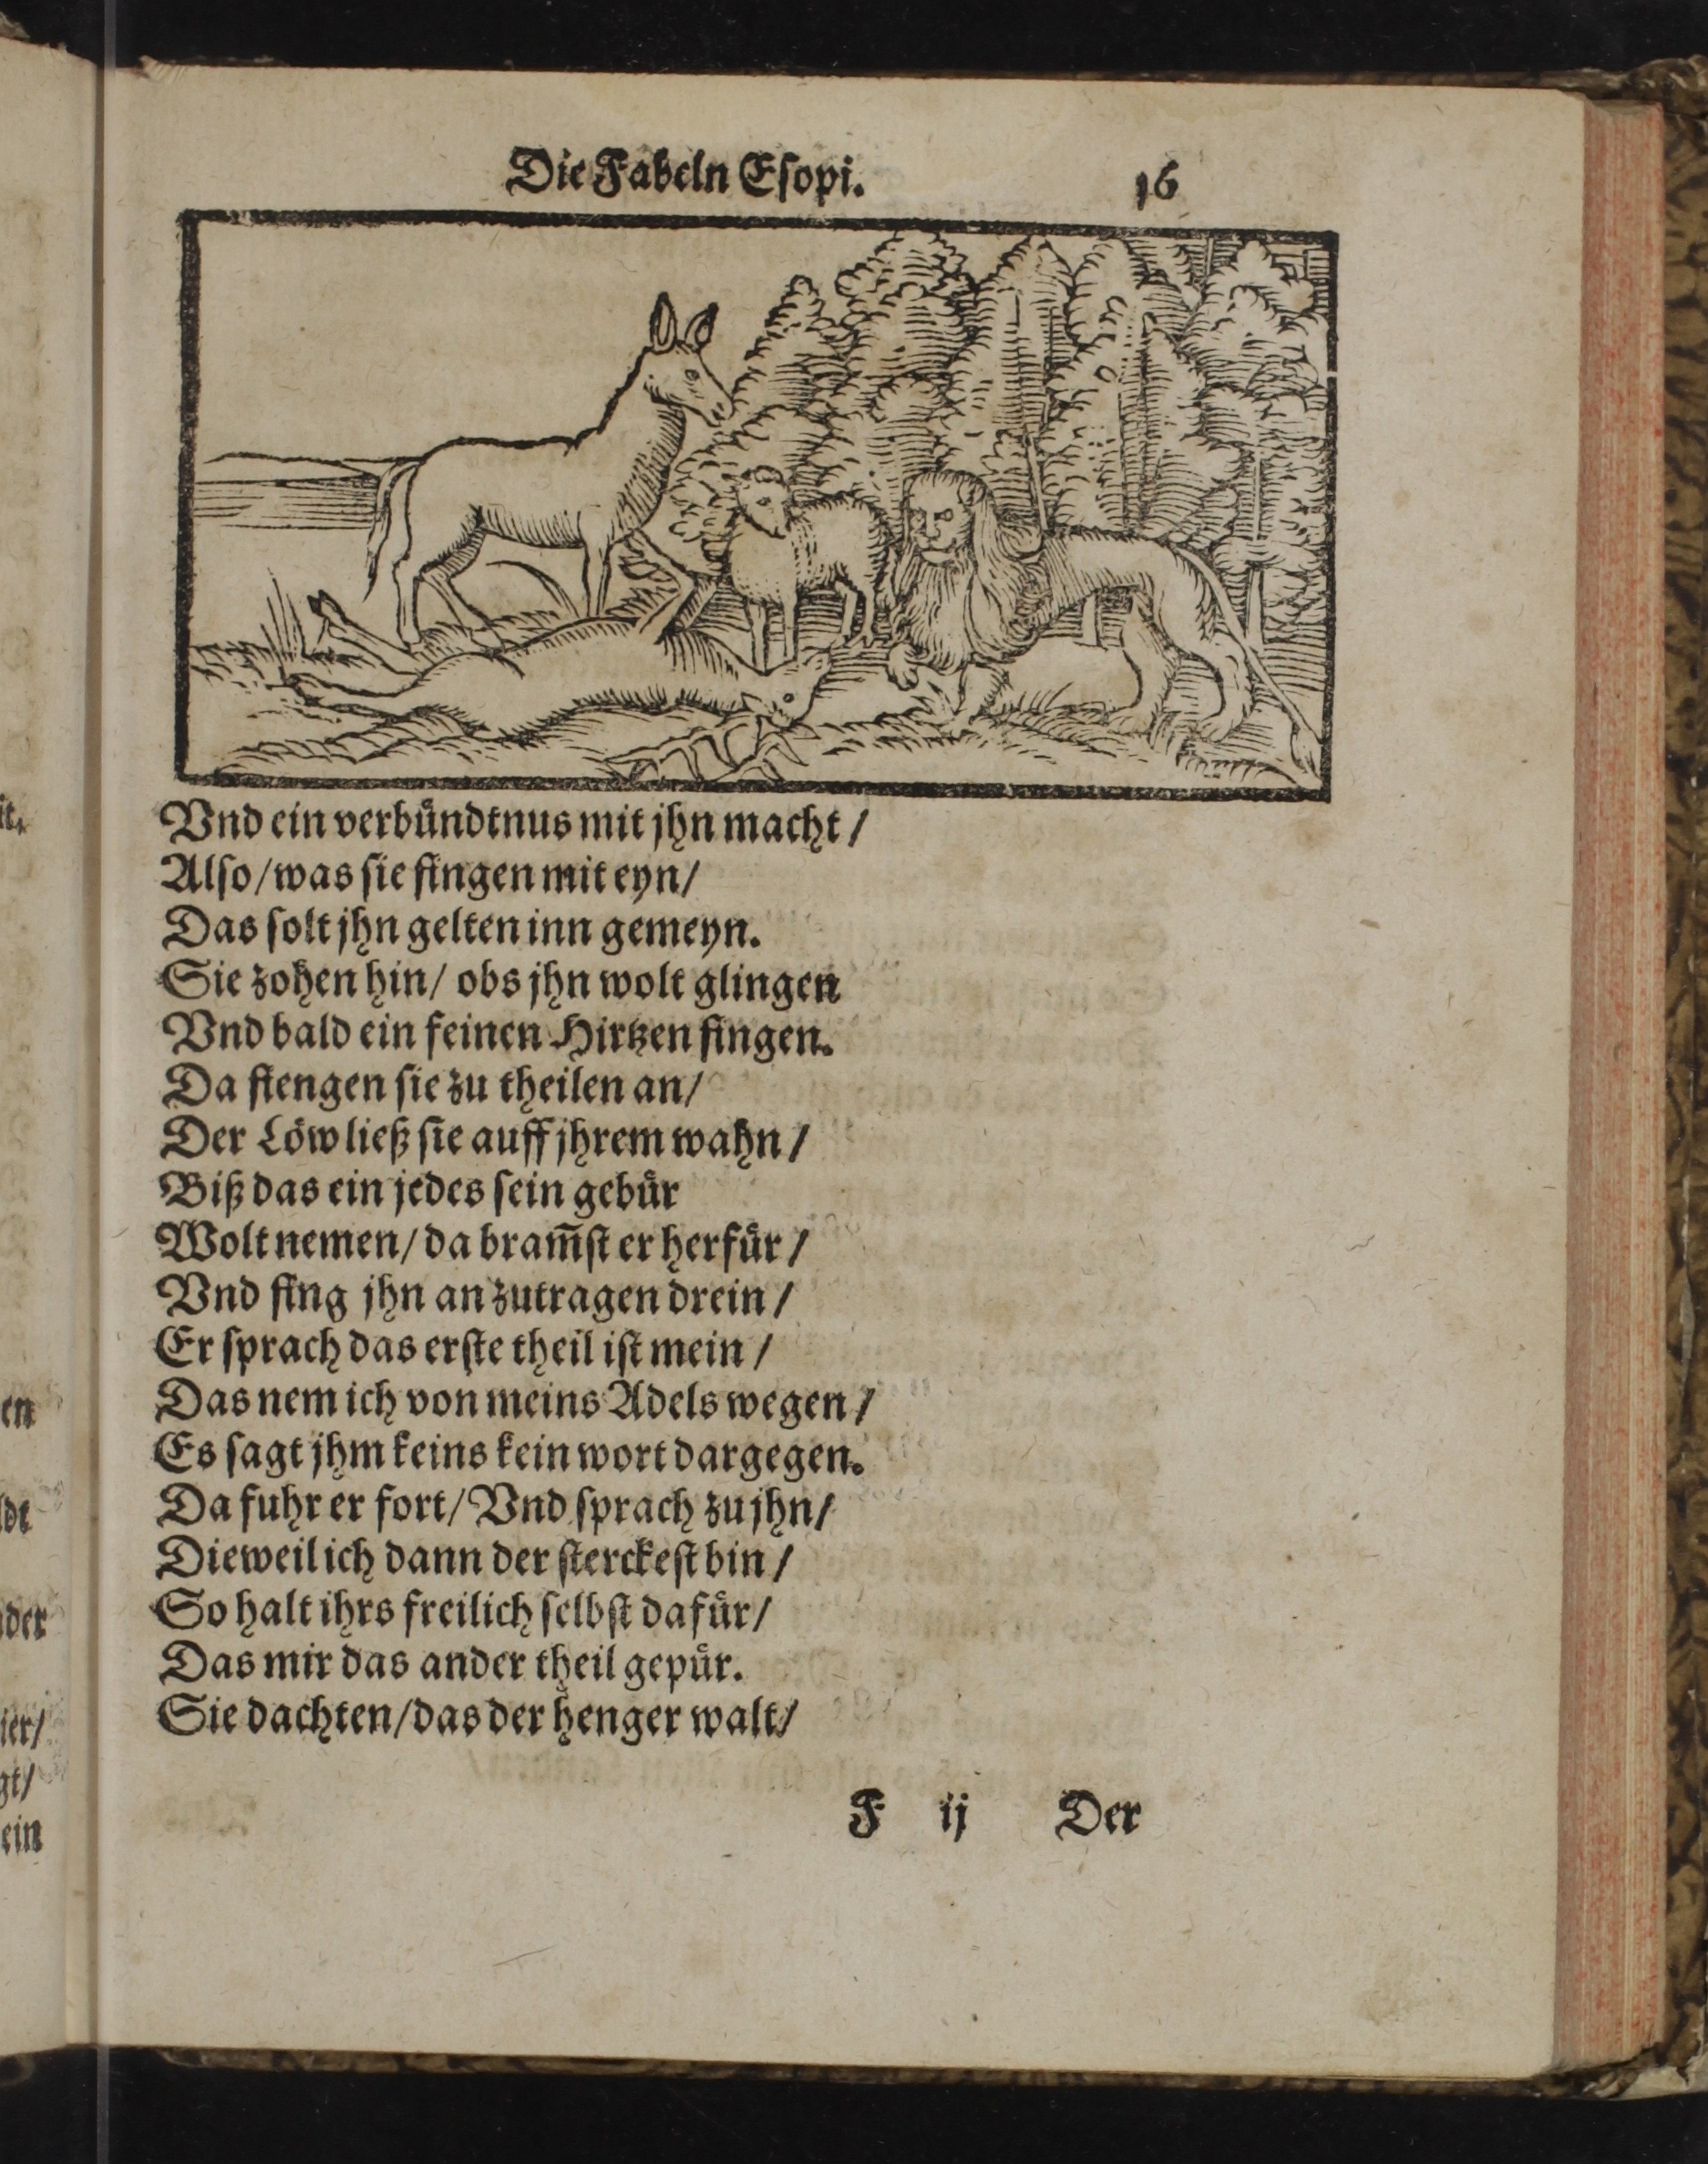 Die Fabeln Eſopi. 16
Vnd ein verbündtnus mit jhn macht /
Alſo / was ſie fingen mit eyn /
Das ſolt jhn gelten inn gemeyn.
Sie zohen hin / obs jhn wolt glingen
Vnd bald ein feinen Hirtzen fingen.
Da fiengen ſie zu theilen an /
Der Löw ließ ſie auff jhrem wahn /
Biß das ein jedes ſein gebür
Wolt nemen / da bram̃ſt er herfür /
Vnd fing jhn an zutragen drein /
Er ſprach das erſte theil iſt mein /
Das nem ich von meins Adels wegen /
Es ſagt jhm keins kein wort dargegen.
Da fuhr er fort / Vnd ſprach zu jhn /
Dieweil ich dann der ſterckeſt bin /
So halt ihrs freilich ſelbſt dafür /
Das mir das ander theil gepür.
Sie dachten / das der henger walt /
F ij Der
it.
en
ldt
der
ier /
gt /
ein